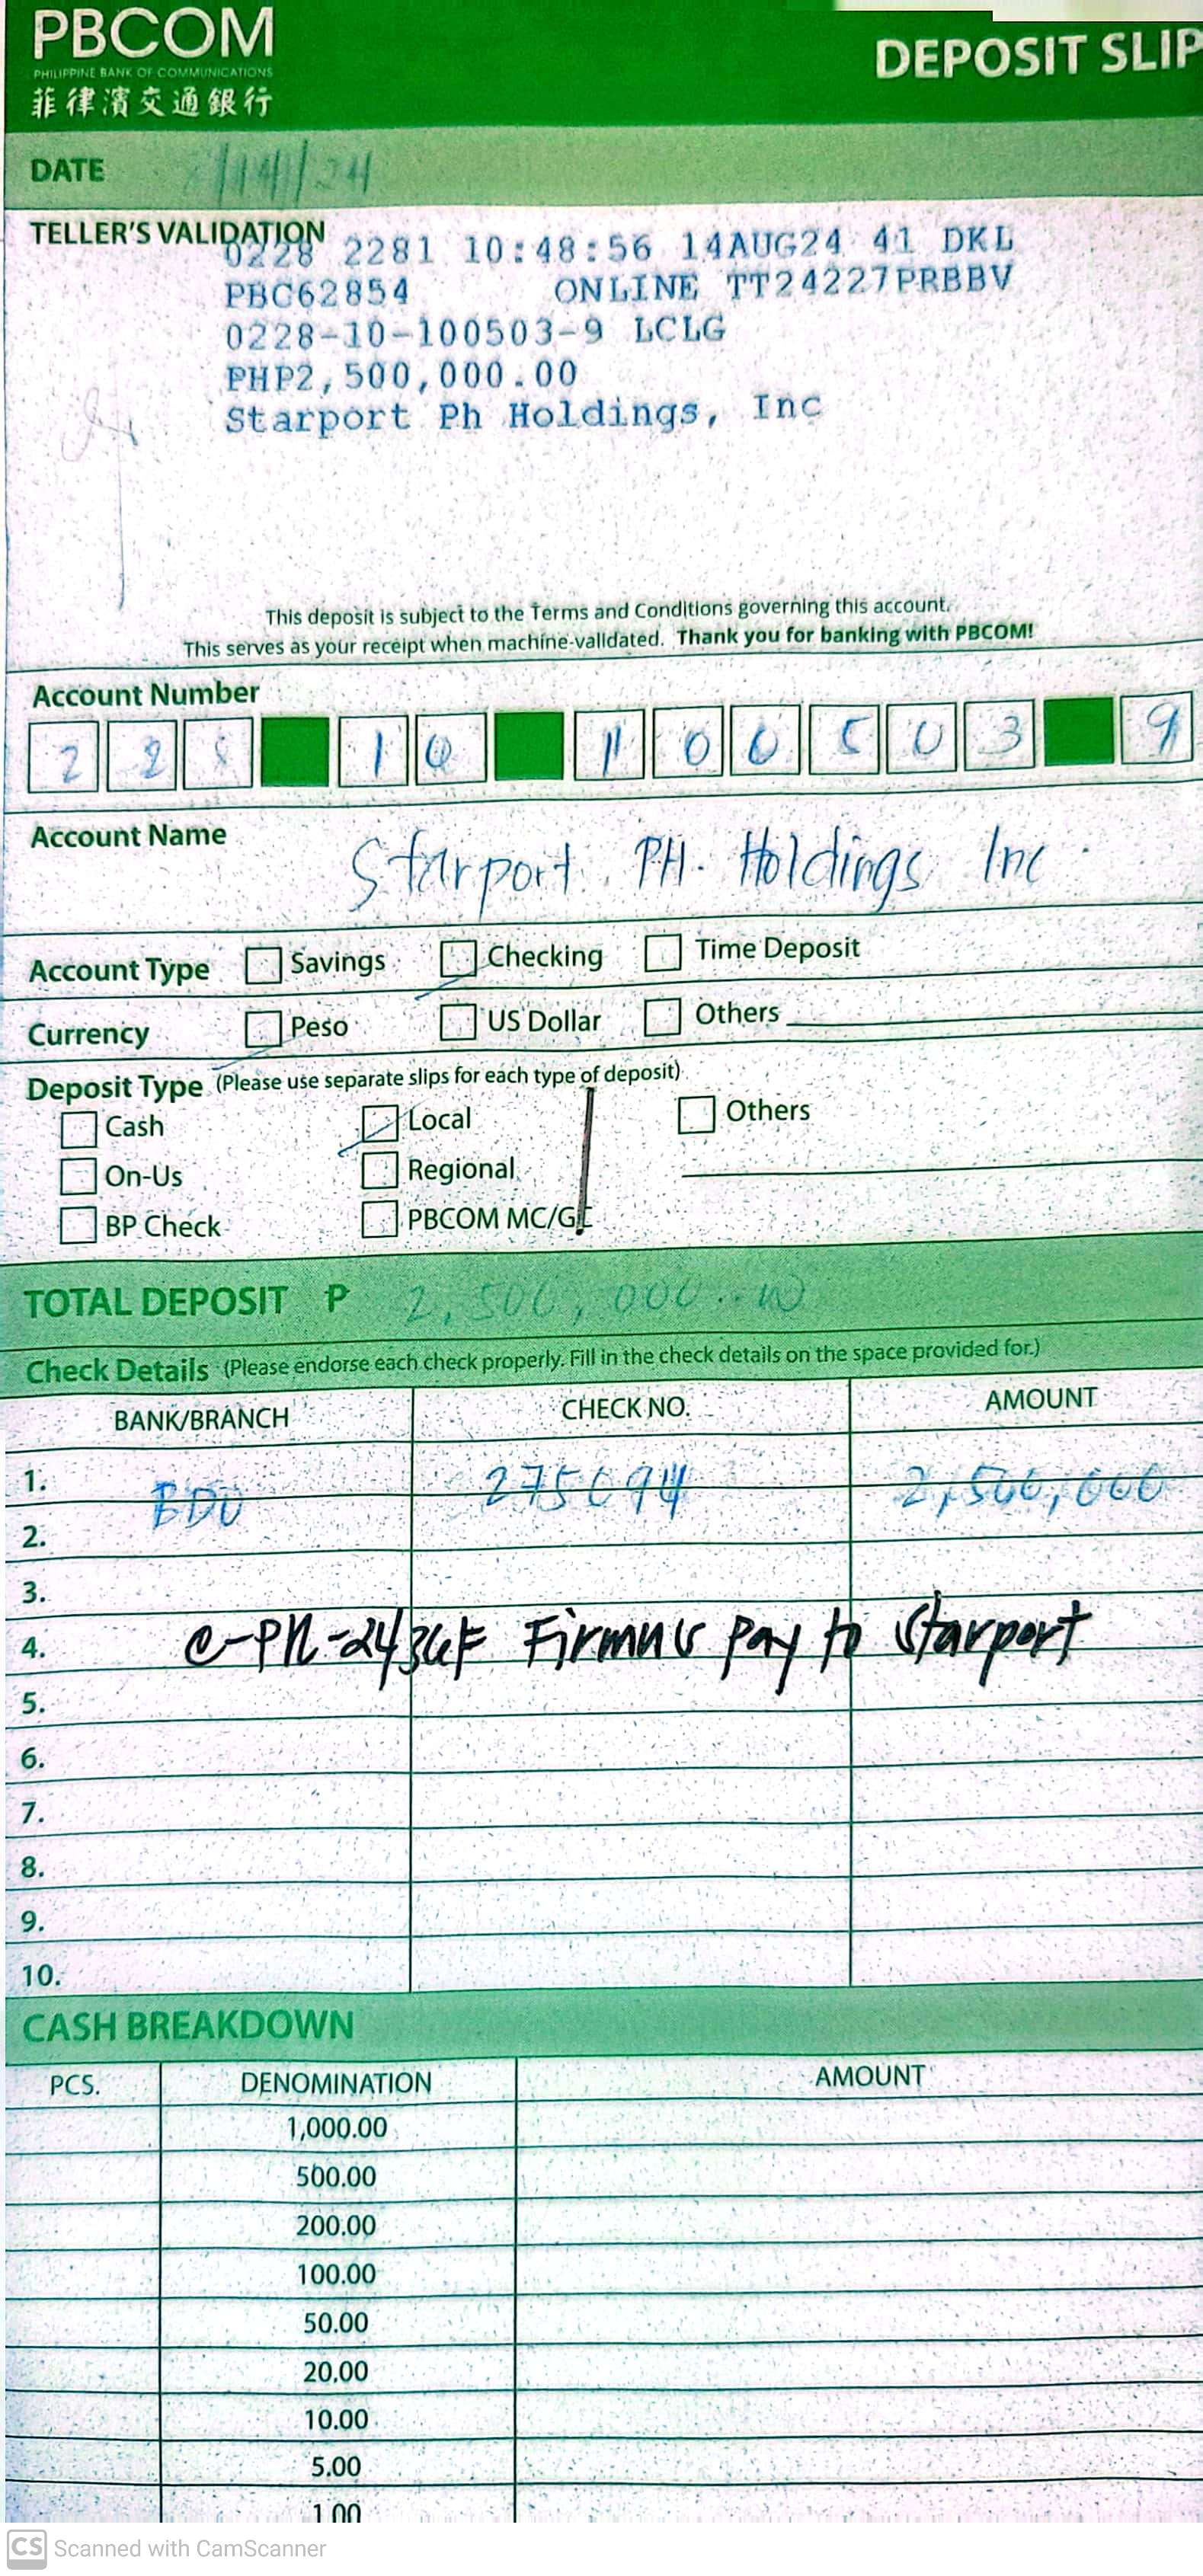 PBCOM
PHILIPPINE BANK OF COMMUNICATIONS
菲律濱交通銀行
DEPOSIT SLIP
DATE /14/24
TELLER'S VALIDATION
0228 2281 10:48:56 14AUG24 41 DKL
PBC62854 ONLINE TT24227PRBBV
0228-10-100503-9 LCLG
PHP2,500,000.00
Starport Ph Holdings, Inc
This deposit is subject to the Terms and Conditions governing this account.
This serves as your receipt when machine-validated. Thank you for banking with PBCOM!
Account Number
2 2 8 1 0 1 0 0 5 0 3 9
Account Name Starport PH. Holdings Inc
Account Type Savings Checking Time Deposit
Currency Peso US Dollar Others
Deposit Type (Please use separate slips for each type of deposit)
Cash Local Others
On-Us Regional
BP Check PBCOM MC/GC
TOTAL DEPOSIT ₱ 2,500,000.00
Check Details (Please endorse each check properly. Fill in the check details on the space provided for.)
BANK/BRANCH CHECK NO. AMOUNT
1. BDO 275094 2,500,000
2.
3.
4. Firmus pay to Starport
5.
6.
7.
8.
9.
10.
CASH BREAKDOWN
PCS. DENOMINATION AMOUNT
1,000.00
500.00
200.00
100.00
50.00
20.00
10.00
5.00
1.00
CS Scanned with CamScanner